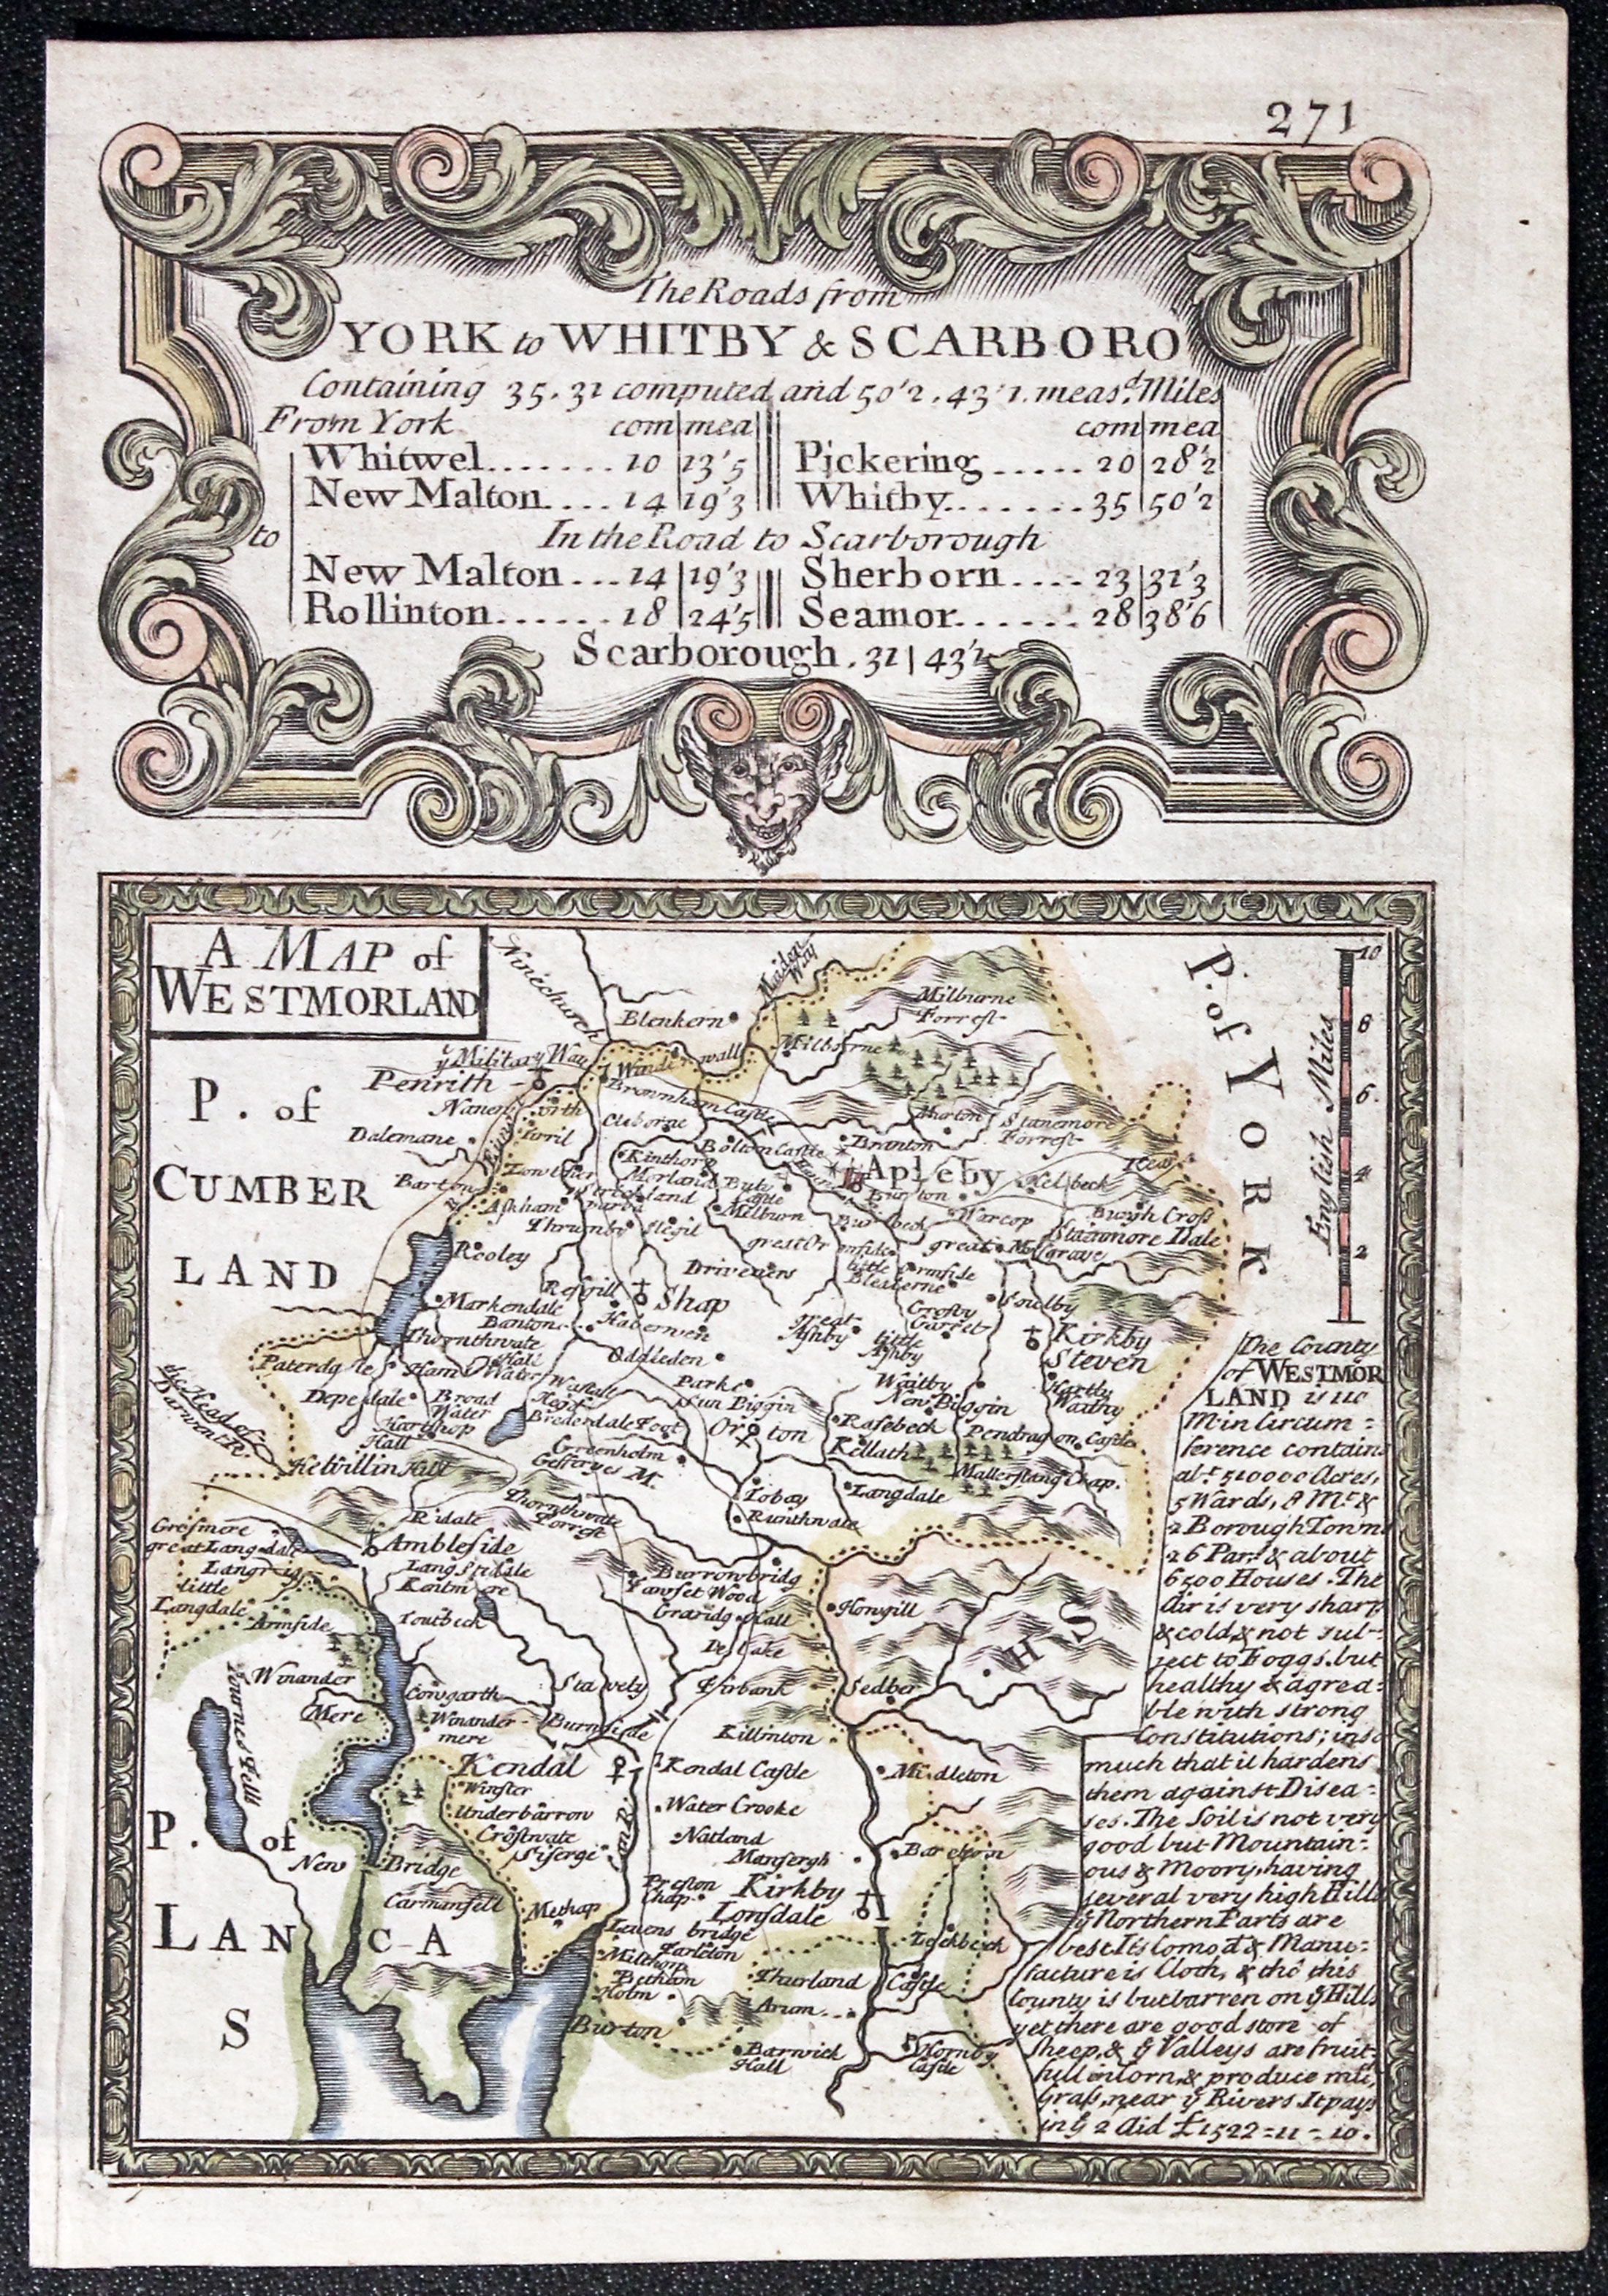 271
The Roads from
YORK to WHITBY & SCARBORO
Containing 35. 31 computed and 50'2. 43'1. meas.d Miles
From York com mea com mea
Whitwel....... 10 13'5 Pickering..... 20 28'2
New Malton.... 14 19'3 Whitby....... 35 50'2
to In the Road to Scarborough
New Malton... 14 19'3 Sherborn.... 23 31'3
Rollinton...... 18 24'5 Seamor...... 28 38'6
Scarborough. 31 43'1
A MAP of
WESTMORLAND
Ninechurch
Maiden Way
Blenkern
Milburne
Forrest
Milborne
ẙ Military Way
Winder wall
Penrith
Brownham Castle
P. of
CUMBER
LAND
Dalemane
Cleborne
Bolton Castle
Branton
Stanemore
Forrest
Barton
Lowther
Kinthorp
Morland
Apleby
Helbeck
Burton
Askham
Strickland
Melburn
Warcop
Burgh Cross
Thrumby
Slegil
Stainmore Dale
Rooley
great Ormside
great Musgrave
little Ormside
Shap
Markendale
Crosby
Garret
Soulby
great
Ashby
little
Ashby
Kirkby
Steven
Thornthwate
Hall
Oddleden
Paterdale
Parke
Sun Biggin
Waitby
New Biggin
Hartly
Depedale
Broad
Water
Orton
Rasebeck
Pendragon Castle
Harthop
Hall
Brederdale Foot
Kellath
Mallerstang Chap.
the Head of
Darwent R.
Greenholm
Langdale
Tobay
Runthwate
Thornthwate
Forrest
Ridale
Ambleside
Gresmere
great Langdale
little
Langdale
Armside
Kentmere
Burrowbridg
Fawset Wood
Howgill
Toutbeck
Winander
Mere
Fourness Fells
Stavely
Firbank
Sedber
Winander-
mere
Burnside
Killinton
Kendal
Kendal Castle
Midleton
Winster
Underbarron
Crostwate
Water Crooke
Natland
Mansergh
Bareborn
P. of
LANCA
S
H
S
New Bridge
Carmansell
Preston
Chap.
Kirkby
Lonsdale
Methap
Levens bridge
Farleton
Milthorp
Bethom
Holm
Burton
Thurland
Castle
Lackbeck
Arum
Barwick
Hall
Hornby
Castle
P. of YORK
English Miles
10
8
6
4
2
The County
of WESTMOR
LAND is 110
M in Circum=
ference contains
ab.t 510000 Acres,
5 Wards, 8 M.ts &
2 Borough Towns
26 Par.s & about
6500 Houses. The
Air is very sharp
& cold, & not sub-
ject to Foggs, but
healthy & agrea=
ble with strong
Constitutions; inso
much that it hardens
them against Disea=
ses. The Soil is not very
good but Mountain=
ous & Moory, having
several very high Hills
ẙ Northern Parts are
best Its Comod & Manu=
facture is Cloth, & tho this
County is but barren on ẙ Hills
yet there are good store of
Sheep, & ẙ Valleys are fruit=
full in Corn, & produce mu.
Grass, near ẙ Rivers. It pays
in ẙ 2 Aid £1522=11=10.